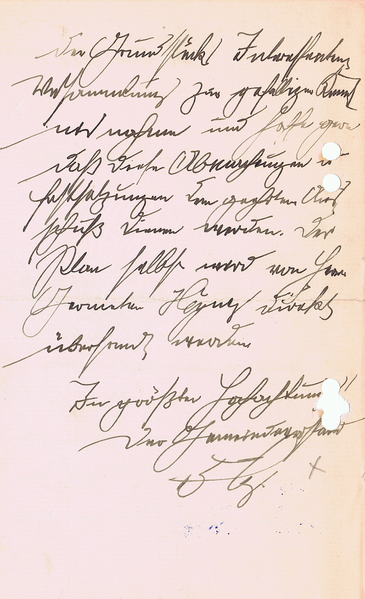 der Grundstücks Interessenten
Versammlung zur gefälligen Kennt
nis nehmen und hoffe gern
daß diese Abmachungen u
Festsetzungen dem geehrten Aus
schuß dienen werden. Der
Plan selbst wird von Herrn
Geometer direkt
übersandt werden
In größter Hochachtung
Der Gemeindevorstand